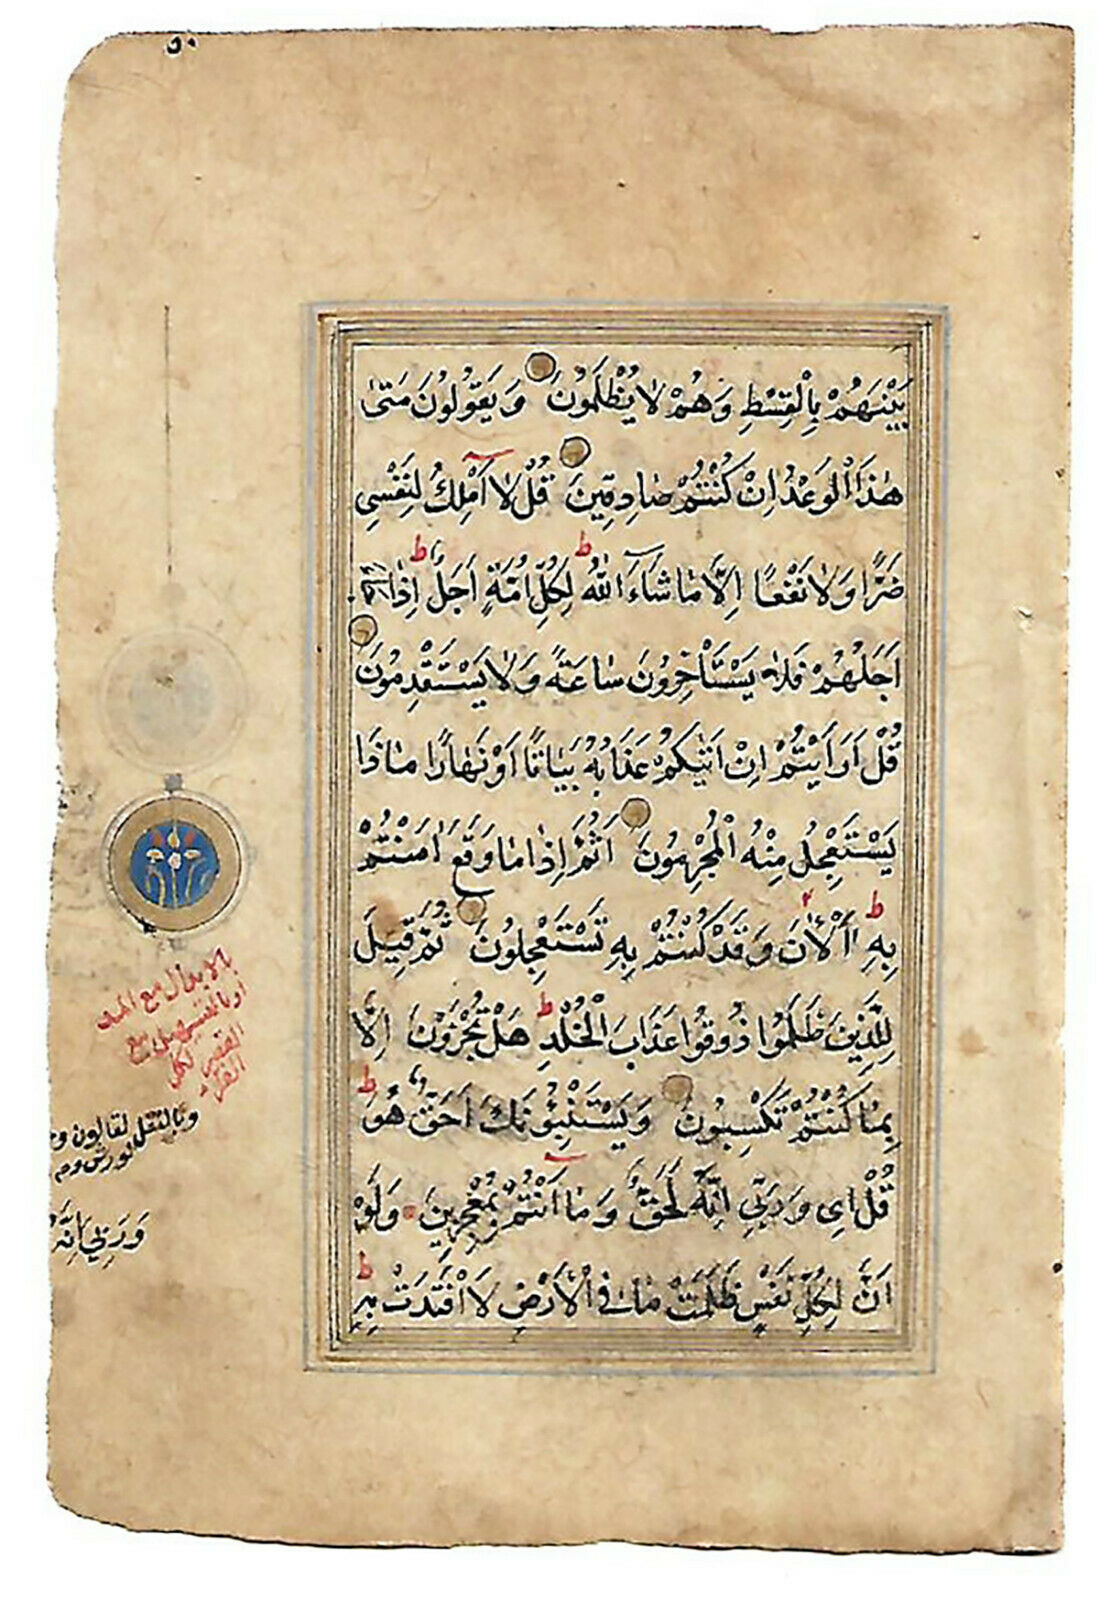 ٥٠
بَيْنَهُمْ بِالْقِسْطِ وَهُمْ لَا يُظْلَمُونَ وَيَقُولُونَ مَتٰى
هٰذَا الْوَعْدُ اِنْ كُنْتُمْ صَادِقِينَ قُلْ لَا اَمْلِكُ لِنَفْسِى
ضَرًّا وَلَا نَفْعًا اِلَّا مَا شَاءَ اللّٰهُ ط لِكُلِّ اُمَّةٍ اَجَلٌ ط اِذَا جَاءَ
اَجَلُهُمْ فَلَا يَسْتَأْخِرُونَ سَاعَةً وَلَا يَسْتَقْدِمُونَ
قُلْ اَرَاَيْتُمْ اِنْ اَتٰيكُمْ عَذَابُهُ بَيَاتًا اَوْ نَهَارًا مَاذَا
يَسْتَعْجِلُ مِنْهُ الْمُجْرِمُونَ اَثُمَّ اِذَا مَا وَقَعَ اٰمَنْتُمْ
بِهِ ط اٰلْاٰنَ وَقَدْ كُنْتُمْ بِهِ تَسْتَعْجِلُونَ ثُمَّ قِيلَ
لِلَّذِينَ ظَلَمُوا ذُوقُوا عَذَابَ الْخُلْدِ ط هَلْ تُجْزَوْنَ اِلَّا
بِمَا كُنْتُمْ تَكْسِبُونَ وَيَسْتَنْبِؤُنَكَ اَحَقٌّ هُوَ ط
قُلْ اِى وَرَبِّى اِنَّهُ لَحَقٌّ وَمَا اَنْتُمْ بِمُعْجِزِينَ وَلَوْ
اَنَّ لِكُلِّ نَفْسٍ ظَلَمَتْ مَا فِى الْاَرْضِ لَافْتَدَتْ بِهِ ط
بالابدال مع المد
او بالتسهيل مع
القصر لكل
القراء
وبالنقل لقالون و
لورش
وَرَبِّى اِنَّهُ